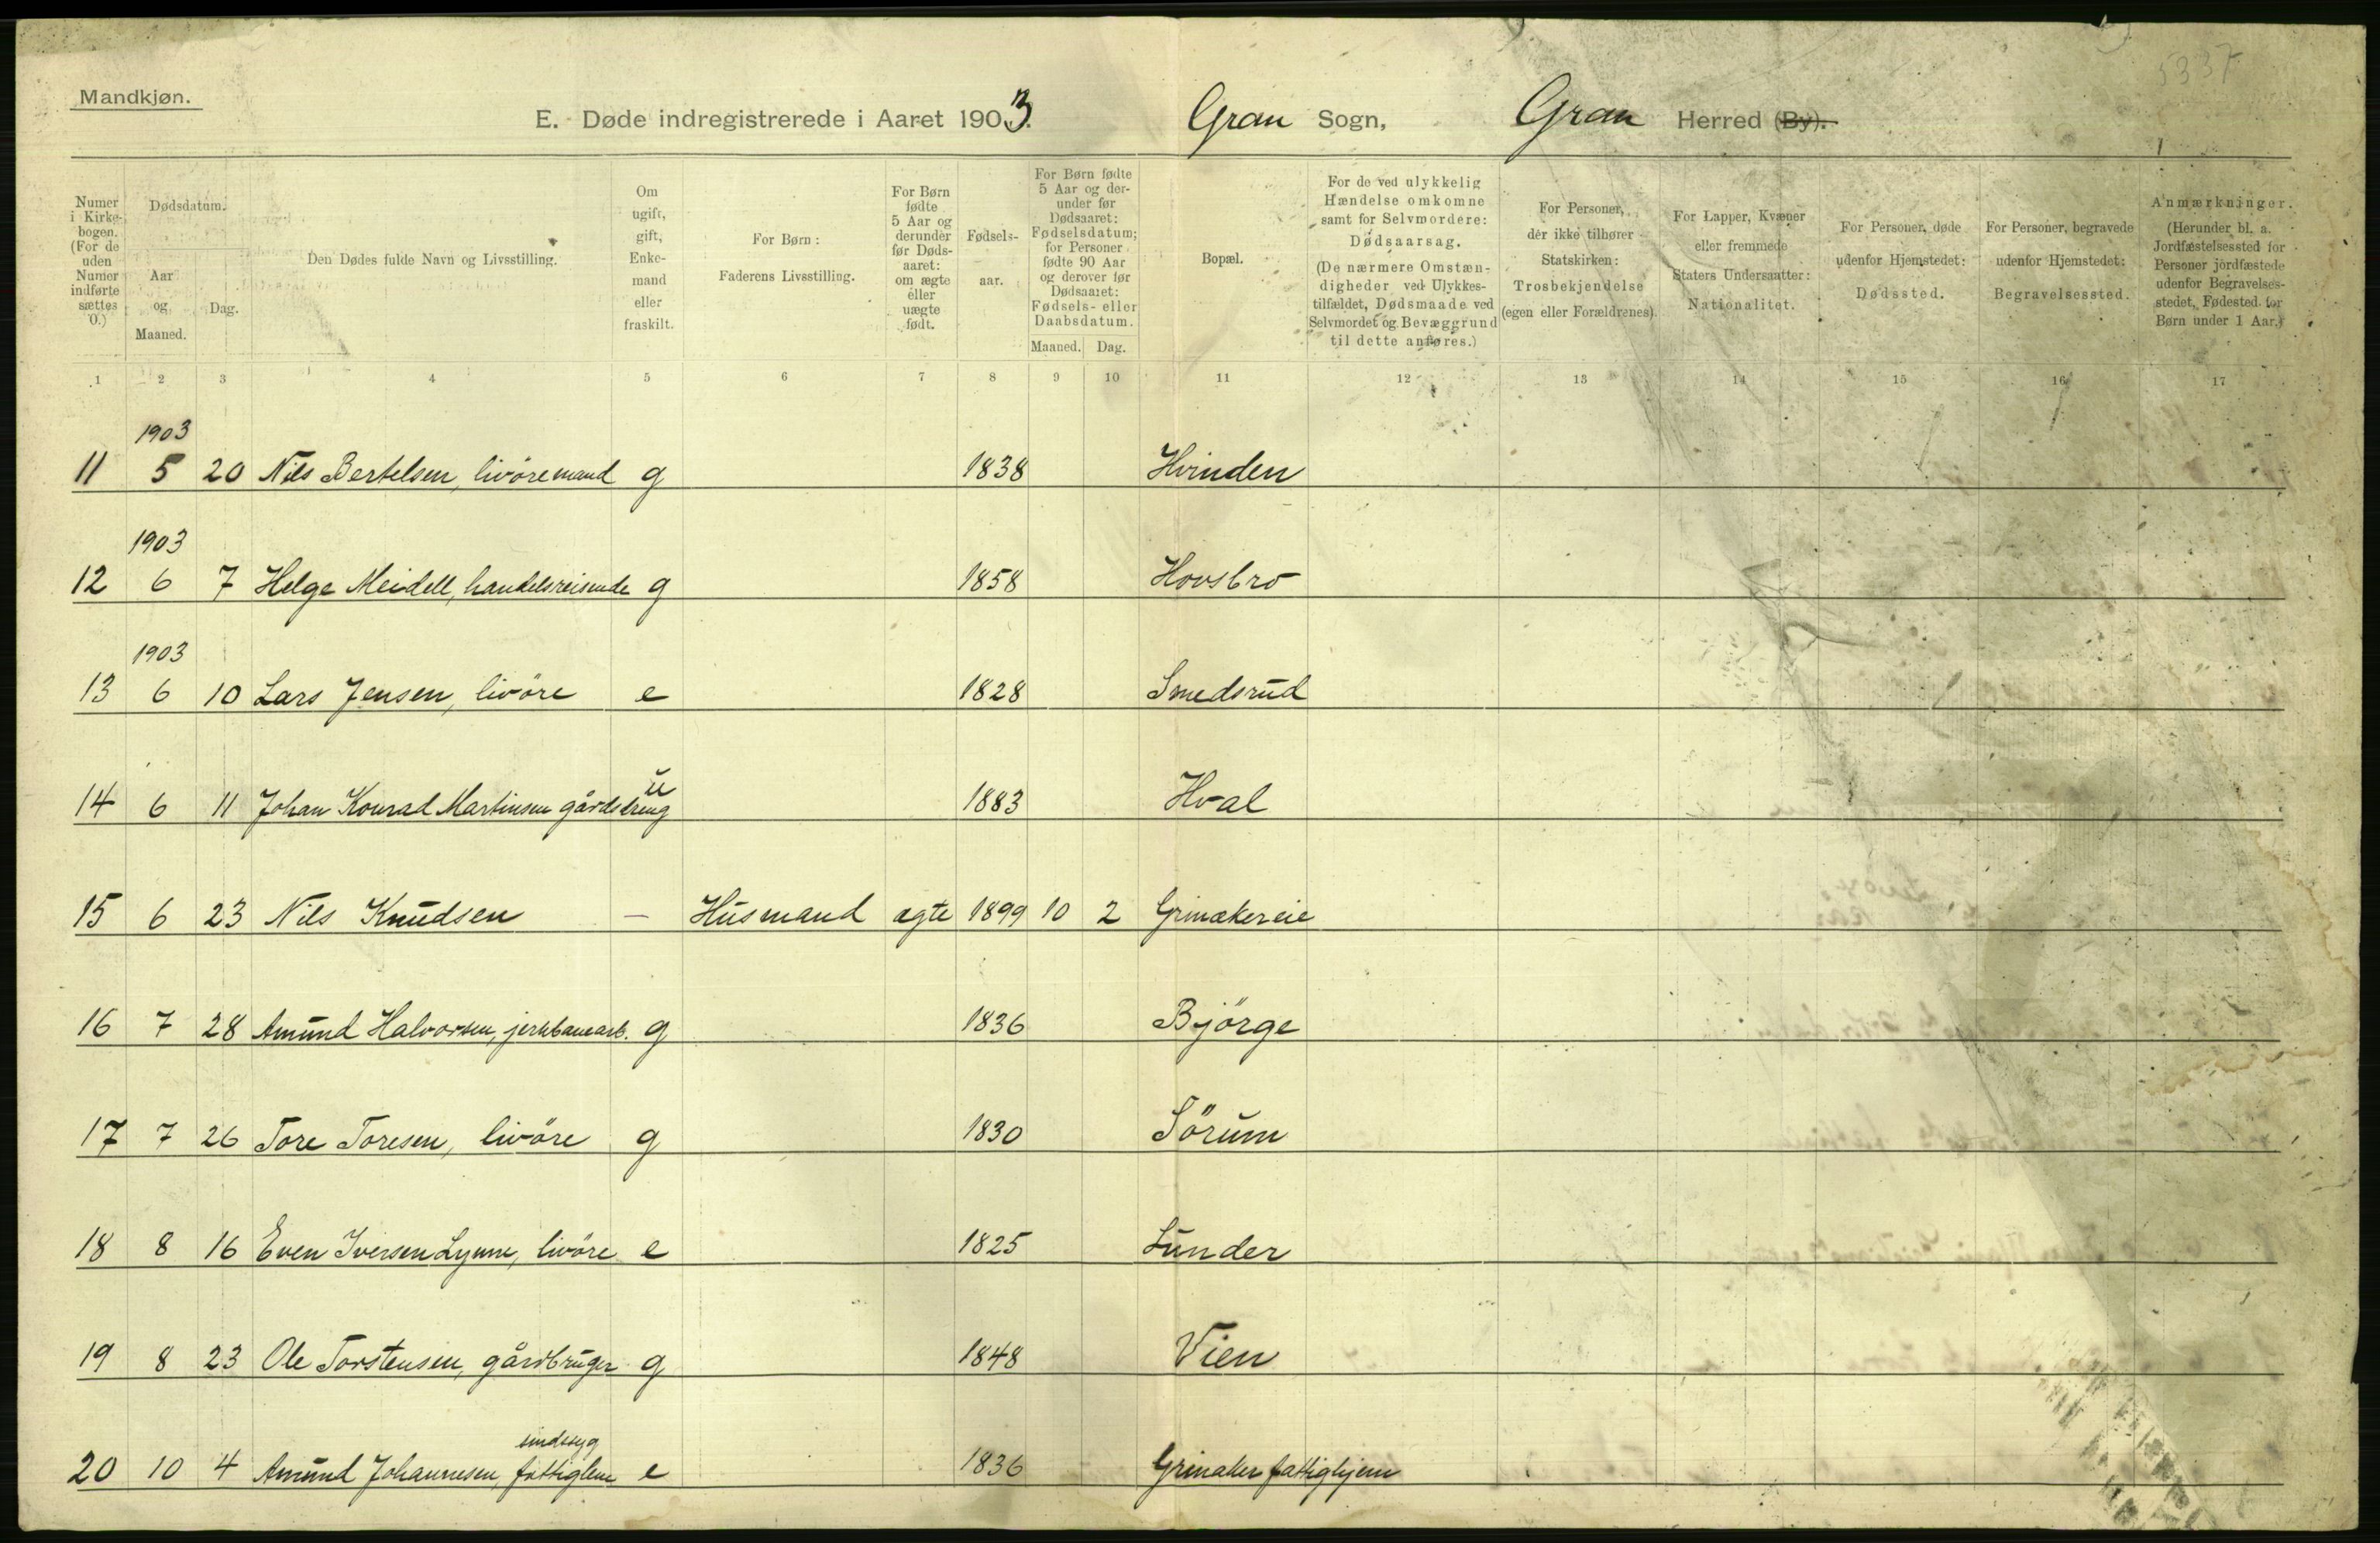 Mandkjøn.
5337
E. Døde indregistrerede i Aaret 1903. Gran Sogn, Gran Herred (By).
Numer i Kirkebogen. (For de uden Numer indførte sættes 0.)
Dødsdatum.
Aar og Maaned.
Dag.
Den Dødes fulde Navn og Livsstilling.
Om ugift, gift, Enkemand eller fraskilt.
For Børn: Faderens Livsstilling.
For Børn fødte 5 Aar og derunder før Dødsaaret: om ægte eller uægte født.
Fødselsaar.
For Børn fødte 5 Aar og derunder før Dødsaaret: Fødselsdatum; for Personer fødte 90 Aar og derover før Dødsaaret: Fødsels- eller Daabsdatum.
Maaned. Dag.
Bopæl.
For de ved ulykkelig Hændelse omkomne samt for Selvmordere: Dødsaarsag. (De nærmere Omstændigheder ved Ulykkestilfældet, Dødsmaade ved Selvmordet og Bevæggrund til dette anføres.)
For Personer, der ikke tilhører Statskirken: Trosbekjendelse (egen eller Forældrenes).
For Lapper, Kvæner eller fremmede Staters Undersaatter: Nationalitet.
For Personer, døde udenfor Hjemstedet: Dødssted.
For Personer, begravede udenfor Hjemstedet: Begravelsessted.
Anmærkninger. (Herunder bl. a. Jordfæstelsessted for Personer jordfæstede udenfor Begravelsesstedet, Fødested for Børn under 1 Aar.)
1 2 3 4 5 6 7 8 9 10 11 12 13 14 15 16 17
1903
11 5 20 Nils Bertelsen, livöremand g 1838 Hvinden
1903
12 6 7 Helge Meidell, handelsreisende g 1858 Hovsbro
1903
13 6 10 Lars Jensen, livöre e 1828 Smedsrud
14 6 11 Johan Konrad Martinsen gårdsdreng u 1883 Hval
15 6 23 Nils Knudsen — Husmand ægte 1899 10 2 Grinakereie
16 7 28 Amund Halvorsen, jernbanearb. g 1836 Björge
17 7 26 Tore Toresen, livöre g 1830 Sörum
18 8 16 Even Iversen Lynne, livöre e 1825 Lunder
19 8 23 Ole Torstensen, gårdbruger g 1848 Vien
sindssyg
20 10 4 Amund Johannesen, fattiglem e 1836 Grinaker fattighjem